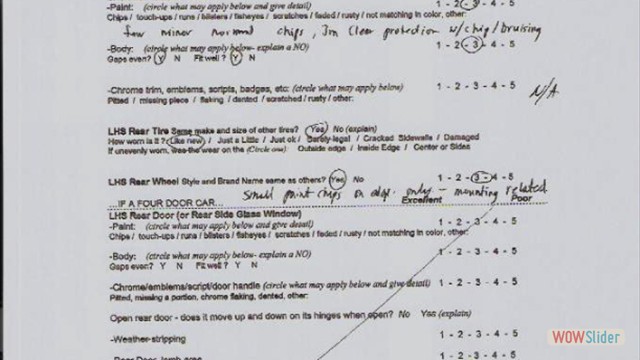 -Paint: (circle what may apply below and give detail) 1 - 2 - 3 - 4 - 5
Chips / touch-ups / runs / blisters / fisheyes / scratches / faded / rusty / not matching in color, other:
few minor normal chips, 3m clear protection w/chip/bruising
-Body: (circle what may apply below- explain a NO) 1 - 2 - 3 - 4 - 5
Gaps even? Y N Fit well? Y N
-Chrome trim, emblems, scripts, badges, etc: (circle what may apply below) 1 - 2 - 3 - 4 - 5 N/A
Pitted / missing piece / flaking / dented / scratched / rusty / other:
LHS Rear Tire Same make and size of other tires? Yes No (explain)
How worn is it? Like new / Just a Little / Just ok / Barely legal / Cracked Sidewalls / Damaged
If unevenly worn, was the wear on the (Circle one): Outside edge / Inside Edge / Center or Sides
LHS Rear Wheel Style and Brand Name same as others? Yes No 1 - 2 - 3 - 4 - 5
small paint chips on edge only - mounting related
...IF A FOUR DOOR CAR... Excellent Poor
LHS Rear Door (or Rear Side Glass Window)
-Paint: (circle what may apply below and give detail) 1 - 2 - 3 - 4 - 5
Chips / touch-ups / runs / blisters / fisheyes / scratches / faded / rusty / not matching in color, other:
-Body: (circle what may apply below- explain a NO) 1 - 2 - 3 - 4 - 5
Gaps even? Y N Fit well? Y N
-Chrome/emblems/script/door handle (circle what may apply below and give detail) 1 - 2 - 3 - 4 - 5
Pitted, missing a portion, chrome flaking, dented, other:
Open rear door - does it move up and down on its hinges when open? No Yes (explain)
-Weather-stripping 1 - 2 - 3 - 4 - 5
-Rear Door jamb area 1 - 2 - 3 - 4 - 5
WOWSlider